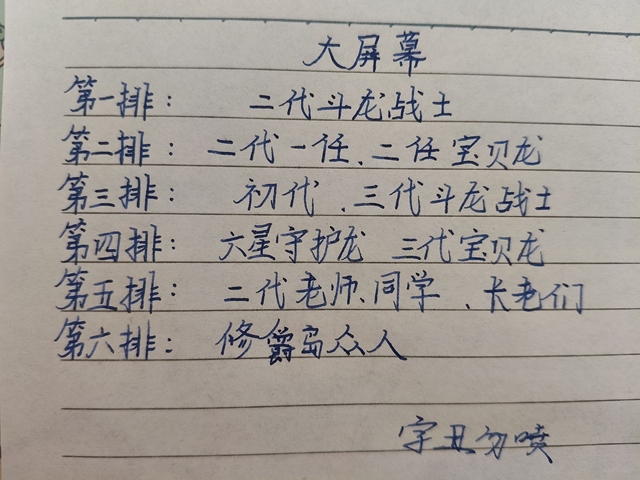 大屏幕
第一排： 二代斗龙战士
第二排： 二代一任、二任宝贝龙
第三排： 初代、三代斗龙战士
第四排： 六星守护龙 三代宝贝龙
第五排： 二代老师、同学、长老们
第六排： 修爵岛众人
字丑勿喷